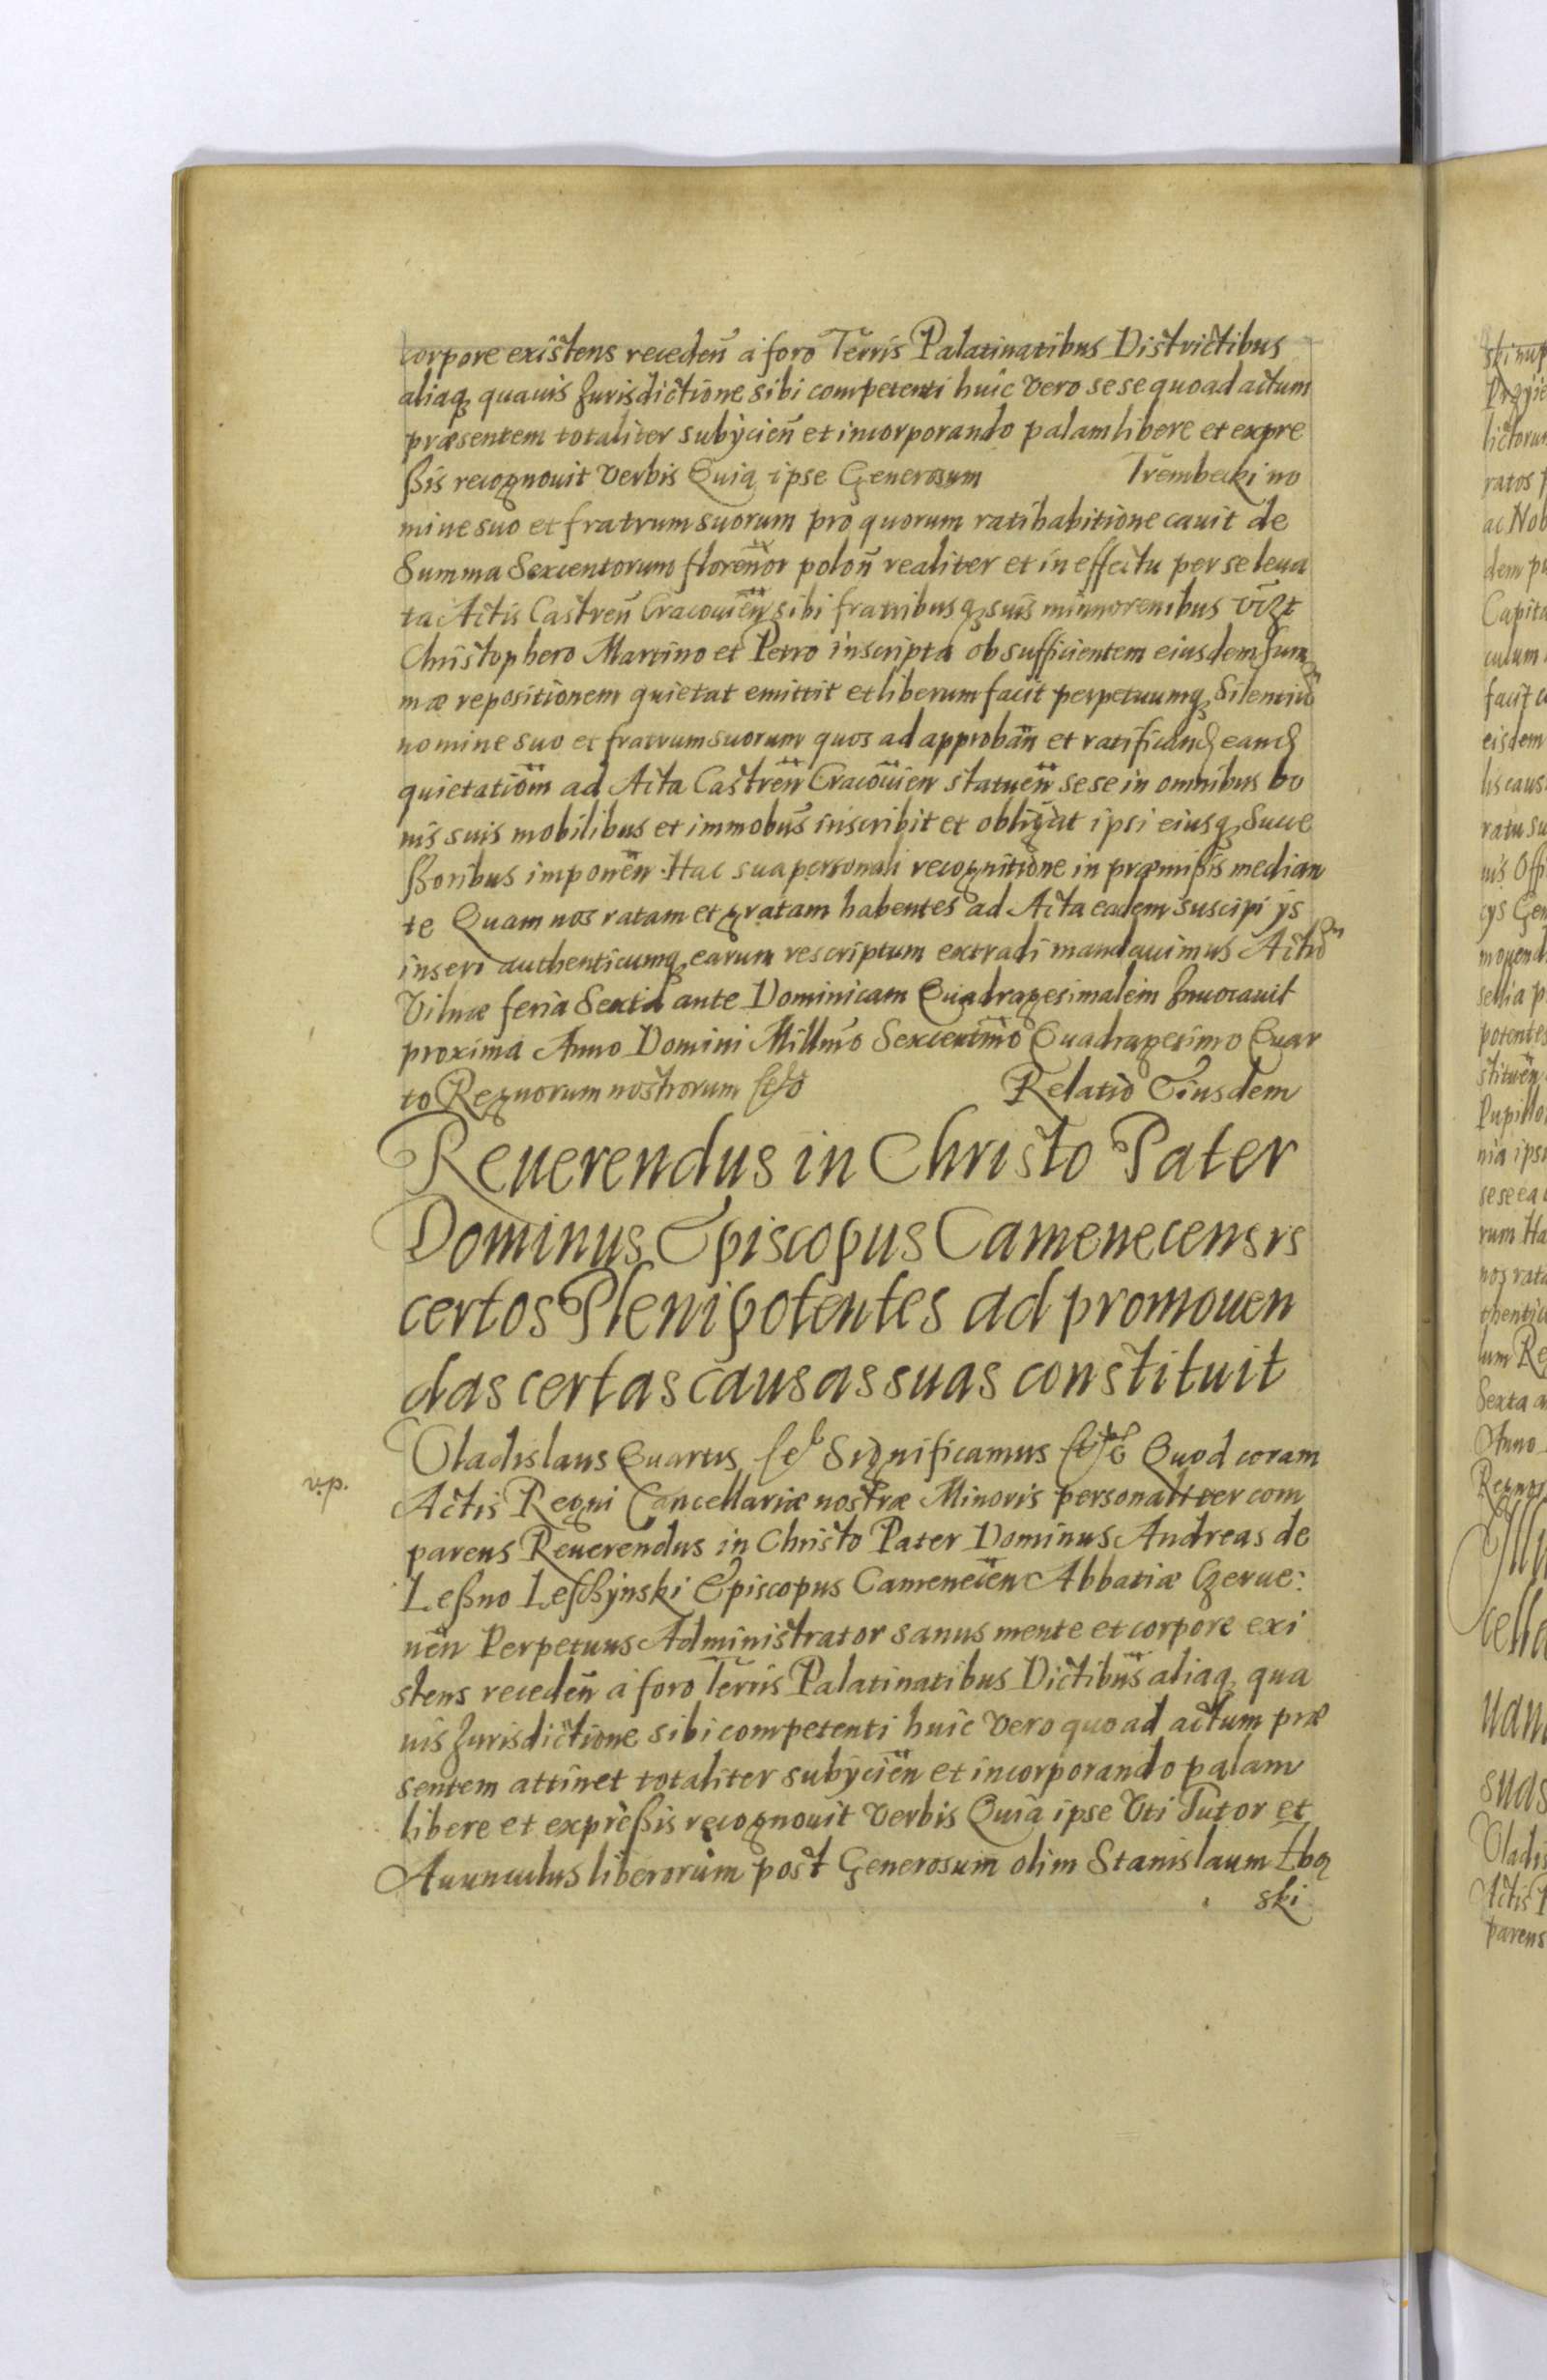 corpore existens receden̄ a foro Terris Palatinatibus Districtibus
aliaq, quauis Jurisdictione sibi competenti huic vero sese quoad actum
præsentem totaliter subÿcien̄ et incorporando palam libere et expre
ßis recognouit verbis Quia ipse Generosum Trembecki no
mine suo et fratrum suorum pro quorum ratihabitione cauit de
Summa Sexcentorum floren̄or polon̄ realiter et in effectu per se leua
ta Actis Castren̄ Cracouien̄ sibi fratribusq, suis minnorenibus vizt
Christophero Martino et Petro inscripta ob sufficientem eiusdem Sum
mæ repositionem quietat emittit et liberum facit perpetuumq, Silentiū
nomine suo et fratrum suorum quos ad approban̄ et ratificand eand
quietation̄ ad Acta Castren̄ Cracouien̄ statuen̄ sese in omnibus bo
nis suis mobilibus et immobūs inscribit et obligat ipsi eiusq, Succe
ßoribus imponen̄. Hac sua personali recognitione in præmißis median
te Quam nos ratam et gratam habentes ad Acta eadem suscipi ÿs
inseri authenticumq, earum rescriptum extradi mandauimus Actū
Vilnæ feria Sexta ante Dominicam Quadragesimalem Inuocauit
proxima Anno Domini Millmō Sexcentmō Quadragesimo Quar
to Regnorum nostrorum Relatio Eiusdem
Reuerendus in Christo Pater
Dominus Episcopus Camenecensis
certos Plenipotentes ad promouen
das certas causas suas constituit
Vladislaus Quartus Significamus Quod coram
Actis Regni Cancellariæ nostræ Minoris personaliter com
parens Reuerendus in Christo Pater Dominus Andreas de
Leßno Leszczÿnski Episcopus Camenecen̄ Abbatiæ Czerue:
nen̄ Perpetuus Administrator sanus mente et corpore exi
stens receden̄ a foro Terris Palatinatibus Dictibūs aliaq, qua
uis Jurisdictione sibi competenti huic vero quoad actum præ
sentem attinet totaliter subÿcien̄ et incorporando palam
libere et expreßis recognouit verbis Quia ipse Vti Tutor et
Auunculus liberorum post Generosum olim Stanislaum Zbą
ski